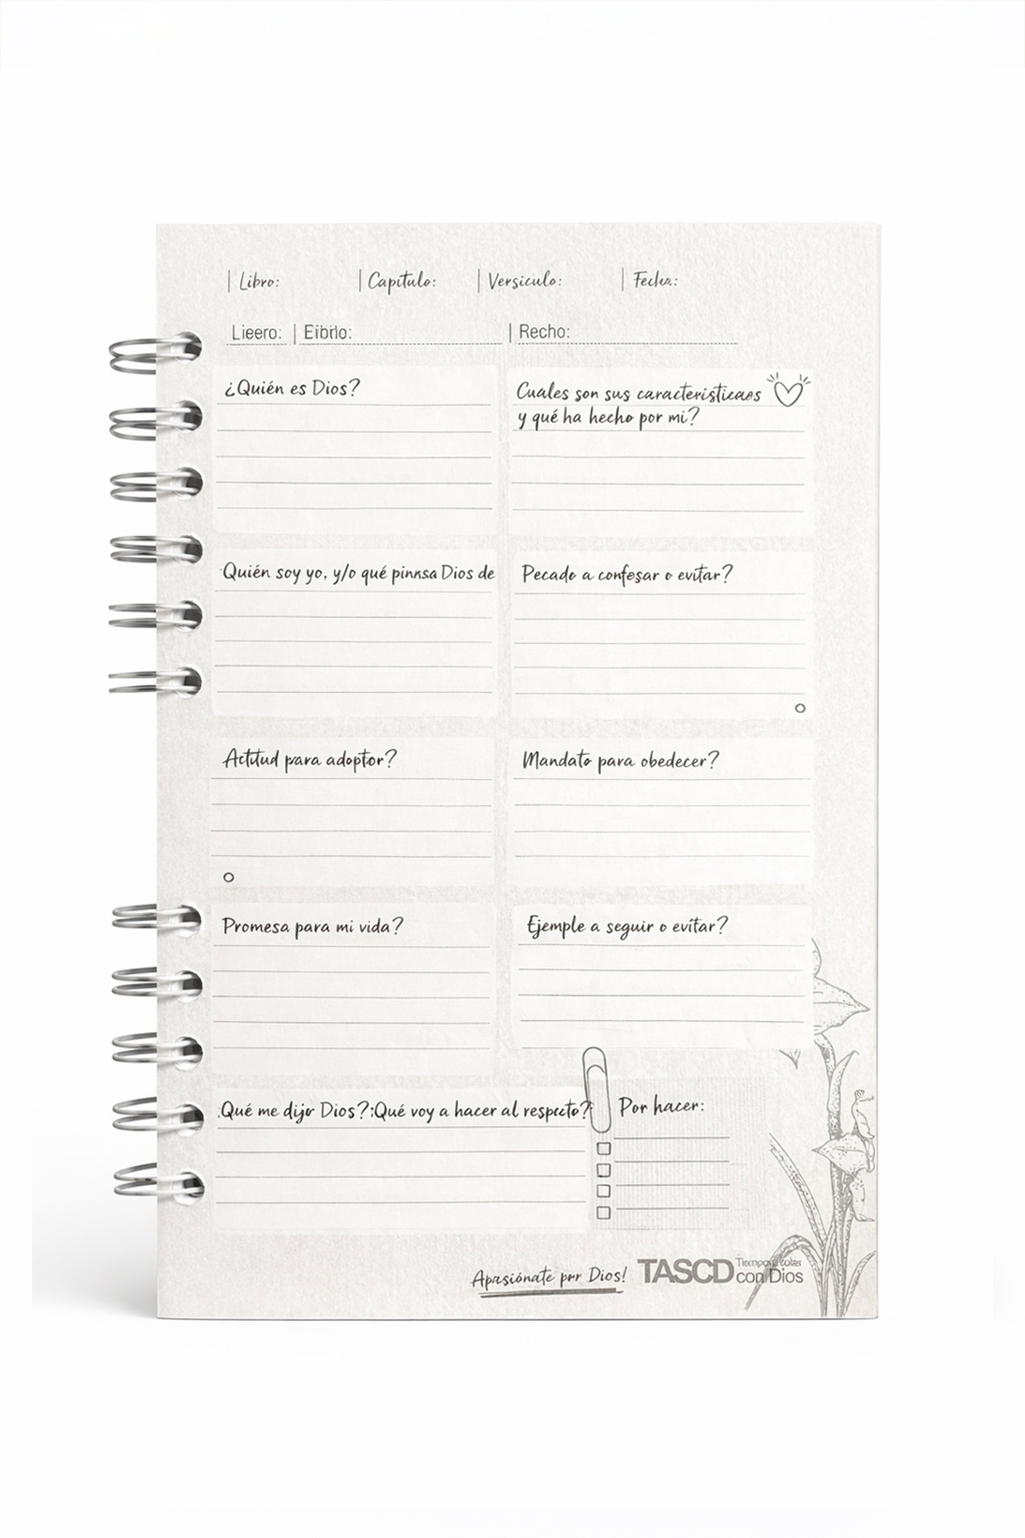 | Libro: | Capítulo: | Versiculo: | Fecha:
Lieero: | Eibrlo: | Recho:
¿Quién es Dios?
Cuales son sus caracteristicaes
y qué ha hecho por mi?
Quién soy yo, y/o qué pinnsa Dios de
Pecado a confesar o evitar?
Actitud para adoptor?
Mandato para obedecer?
Promesa para mi vida?
Ejemple a seguir o evitar?
Qué me dijo Dios?:Qué voy a hacer al respecto?
Por hacer:
Apasiónate por Dios!
TASCD
con Dios